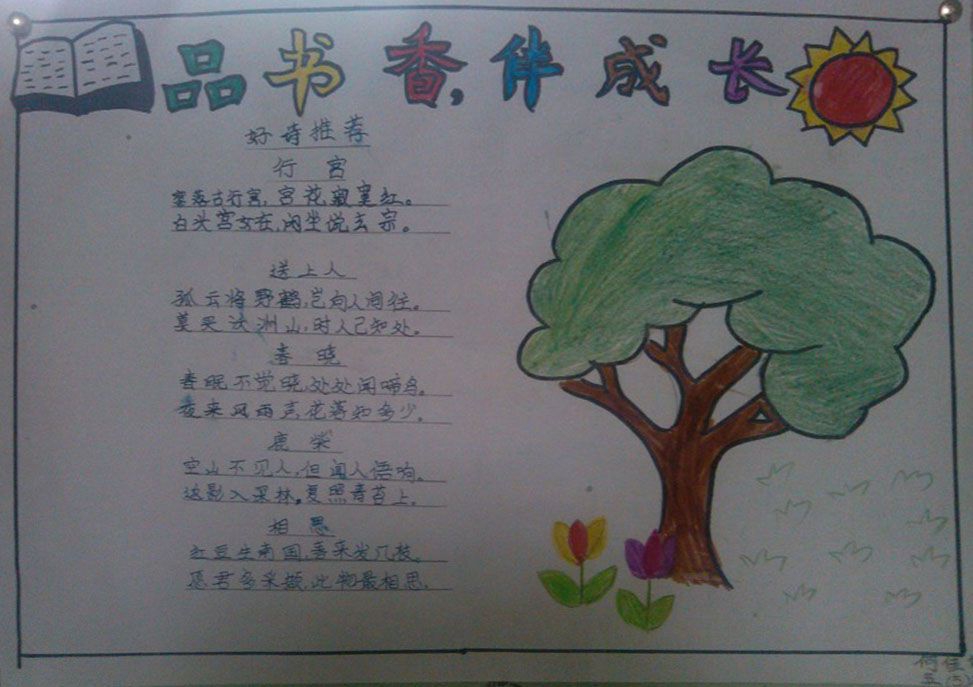 品书香,伴成长
好诗推荐
行宫
寥落古行宫,宫花寂寞红。
白头宫女在,闲坐说玄宗。
送上人
孤云将野鹤,岂向人间往。
莫买沃洲山,时人已知处。
春晓
春眠不觉晓,处处闻啼鸟。
夜来风雨声,花落知多少。
鹿柴
空山不见人,但闻人语响。
返影入深林,复照青苔上。
相思
红豆生南国,春来发几枝。
愿君多采撷,此物最相思.
何佳
五